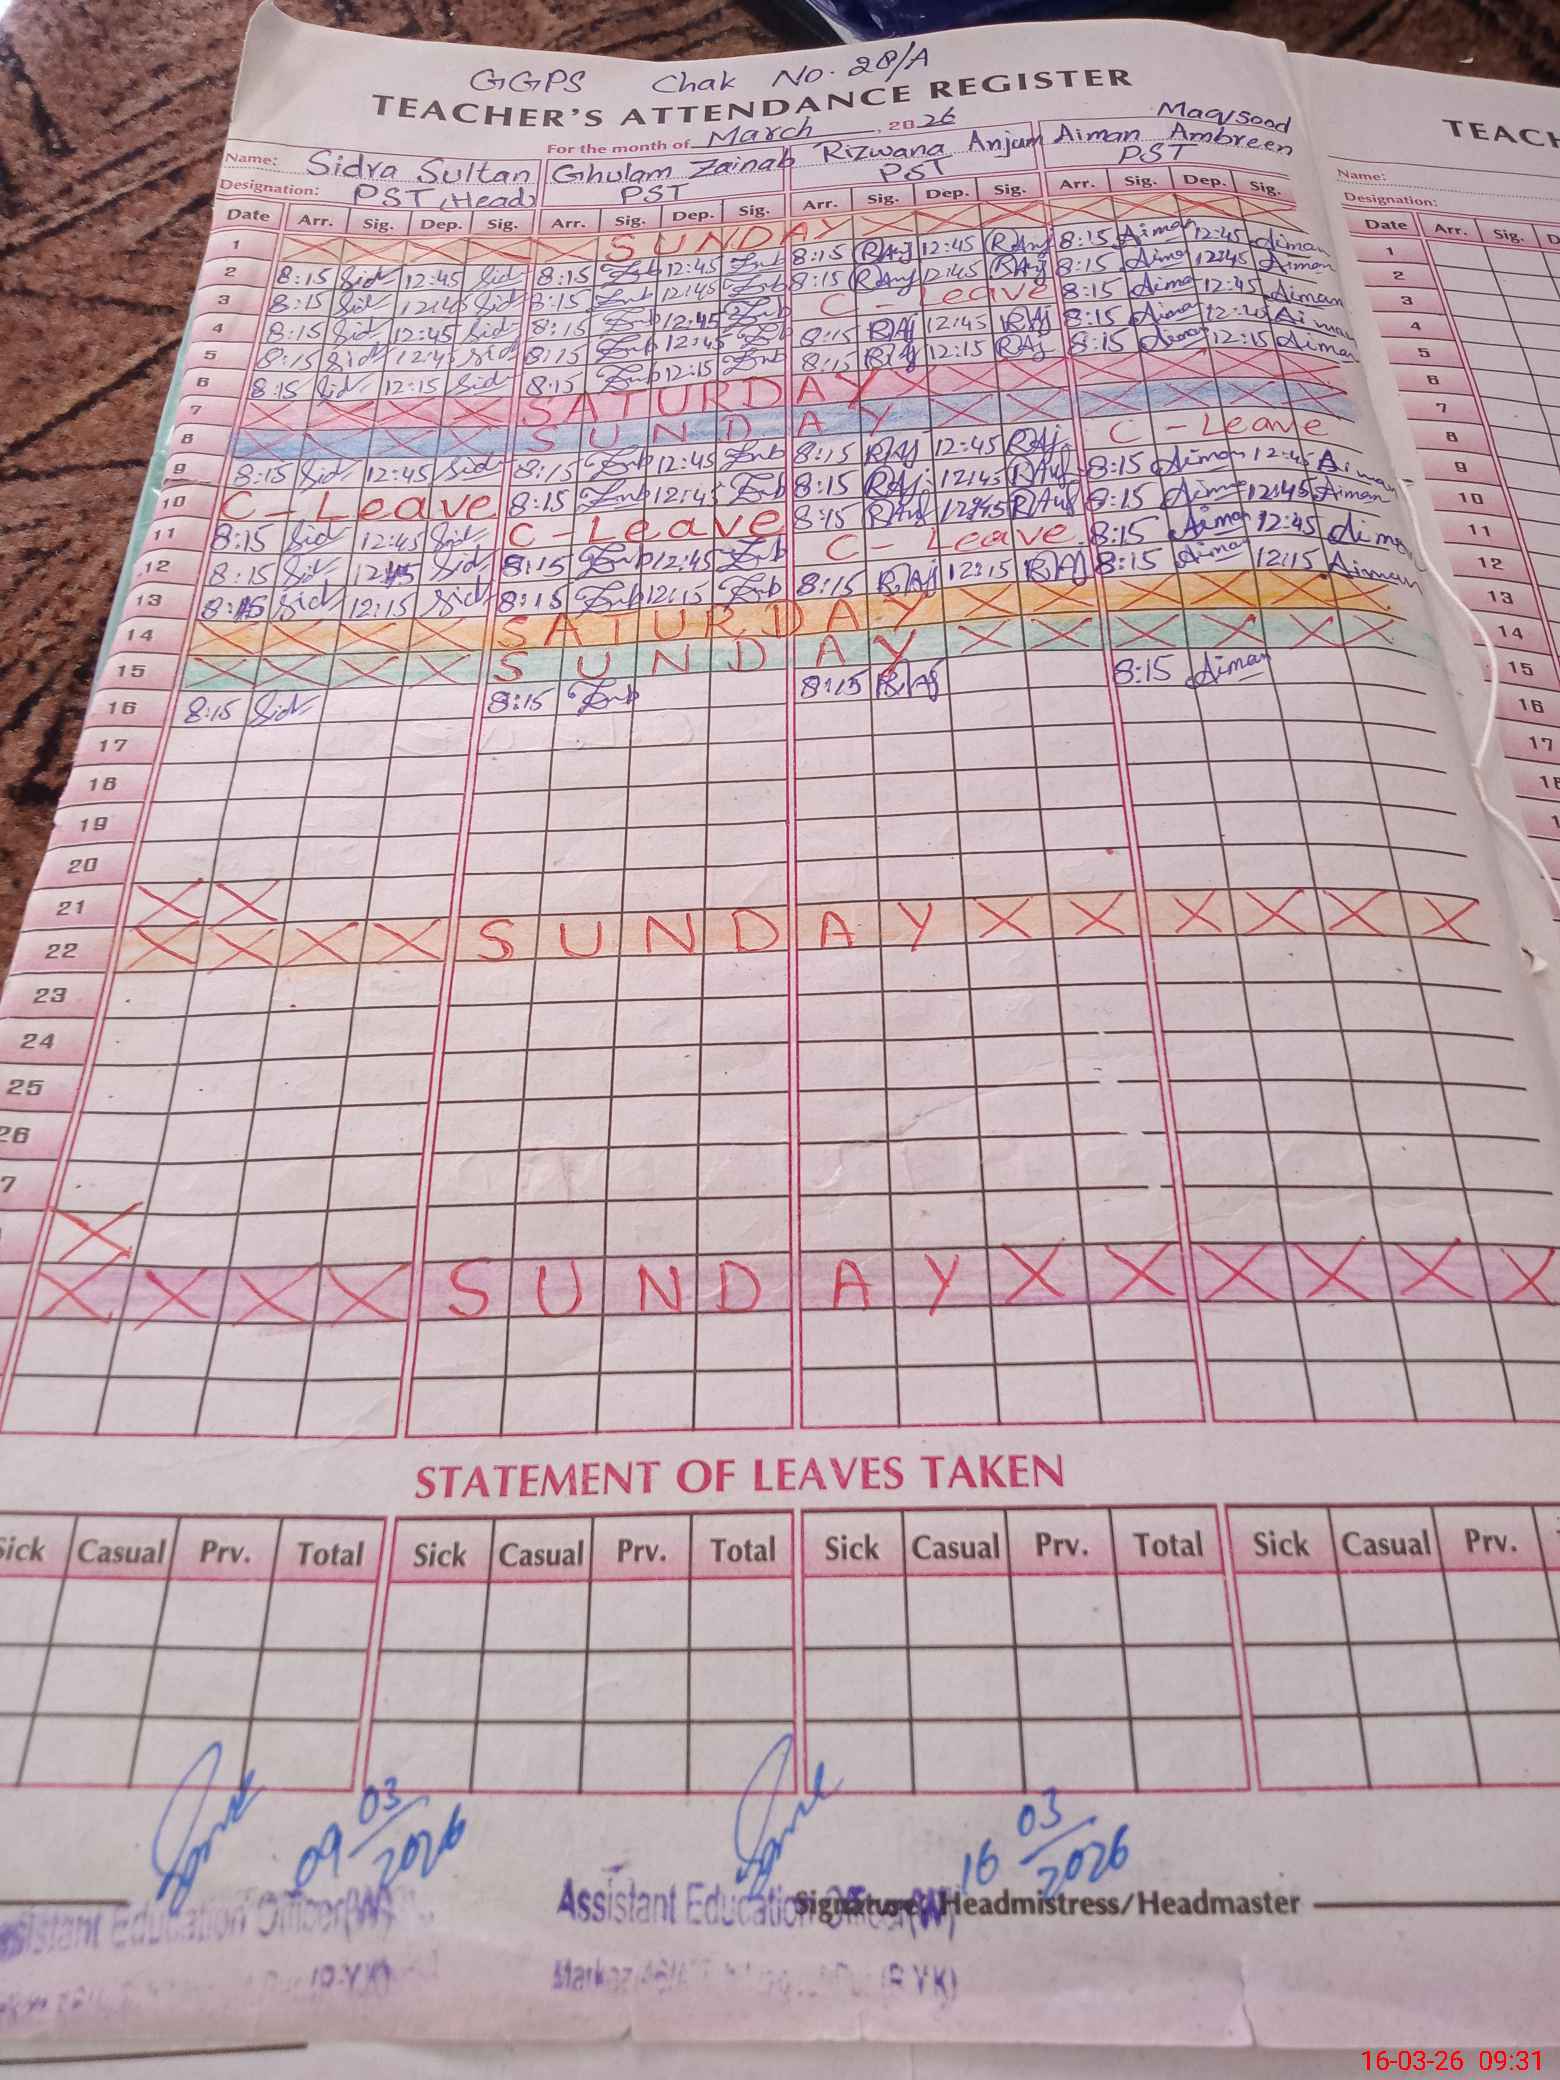 GGPS Chak No. 28/A
TEACHER'S ATTENDANCE REGISTER
For the month of March, 2026
Name: Sidra Sultan Ghulam Zainab Rizwana Anjum Aiman Ambreen Maqsood
Designation: PST (Head) PST PST PST
Date Arr. Sig. Dep. Sig. Arr. Sig. Dep. Sig. Arr. Sig. Dep. Sig. Arr. Sig. Dep. Sig.
1 X X X X X S U N D A Y X X X X X X
2 8:15 Sid 12:45 Sid 8:15 Znb 12:45 Znb 8:15 RAnj 12:45 RAnj 8:15 Aiman 12:45 Aiman
3 8:15 Sid 12:45 Sid 8:15 Znb 12:45 Znb 8:15 RAnj 12:45 RAnj 8:15 Aiman 12:45 Aiman
4 8:15 Sid 12:45 Sid 8:15 Znb 12:45 Znb C - Leave 8:15 Aiman 12:45 Aiman
5 8:15 Sid 12:45 Sid 8:15 Znb 12:45 Znb 8:15 RAj 12:45 RAj 8:15 Aiman Aiman
6 8:15 Sid 12:15 Sid 8:15 Znb 12:15 Znb 8:15 RAj 12:15 RAj 8:15 Aiman 12:15 Aiman
7 X X X X S A T U R D A Y X X X X X X
8 X X X X S U N D A Y X X X X X X
9 8:15 Sid 12:45 Sid 8:15 Znb 12:45 Znb 8:15 RAj 12:45 RAj C - Leave
10 C - Leave 8:15 Znb 12:45 Znb 8:15 RAj 12:45 RAnj 8:15 Aiman 12:45 Aiman
11 8:15 Sid 12:45 Sid C - Leave 8:15 RAnj 12:45 RAnj 8:15 Aiman 12:45 Aiman
12 8:15 Sid 12:45 Sid 8:15 Znb 12:45 Znb C - Leave 8:15 Aiman 12:45 Aiman
13 8:15 Sid 12:15 Sid 8:15 Znb 12:15 Znb 8:15 RAj 12:15 RAj 8:15 Aiman 12:15 Aiman
14 X X X X S A T U R D A Y X X X X X X
15 X X X X S U N D A Y X X X X X X
16 8:15 Sid 8:15 Znb 8:15 RAj 8:15 Aiman
17
18
19
20
21 X X
22 X X X X S U N D A Y X X X X X X
23
24
25
26
7
X
X X X X S U N D A Y X X X X X X
STATEMENT OF LEAVES TAKEN
Sick Casual Prv. Total Sick Casual Prv. Total Sick Casual Prv. Total Sick Casual Prv.
09 03/2026 16 03/2026
Signature Headmistress/Headmaster
Assistant Education Officer (W)
Assistant Education Officer (W)
TEACH
Name:
Designation:
Date Arr. Sig. D
1
2
3
4
5
6
7
8
9
10
11
12
13
14
15
16
17
16-03-26 09:31